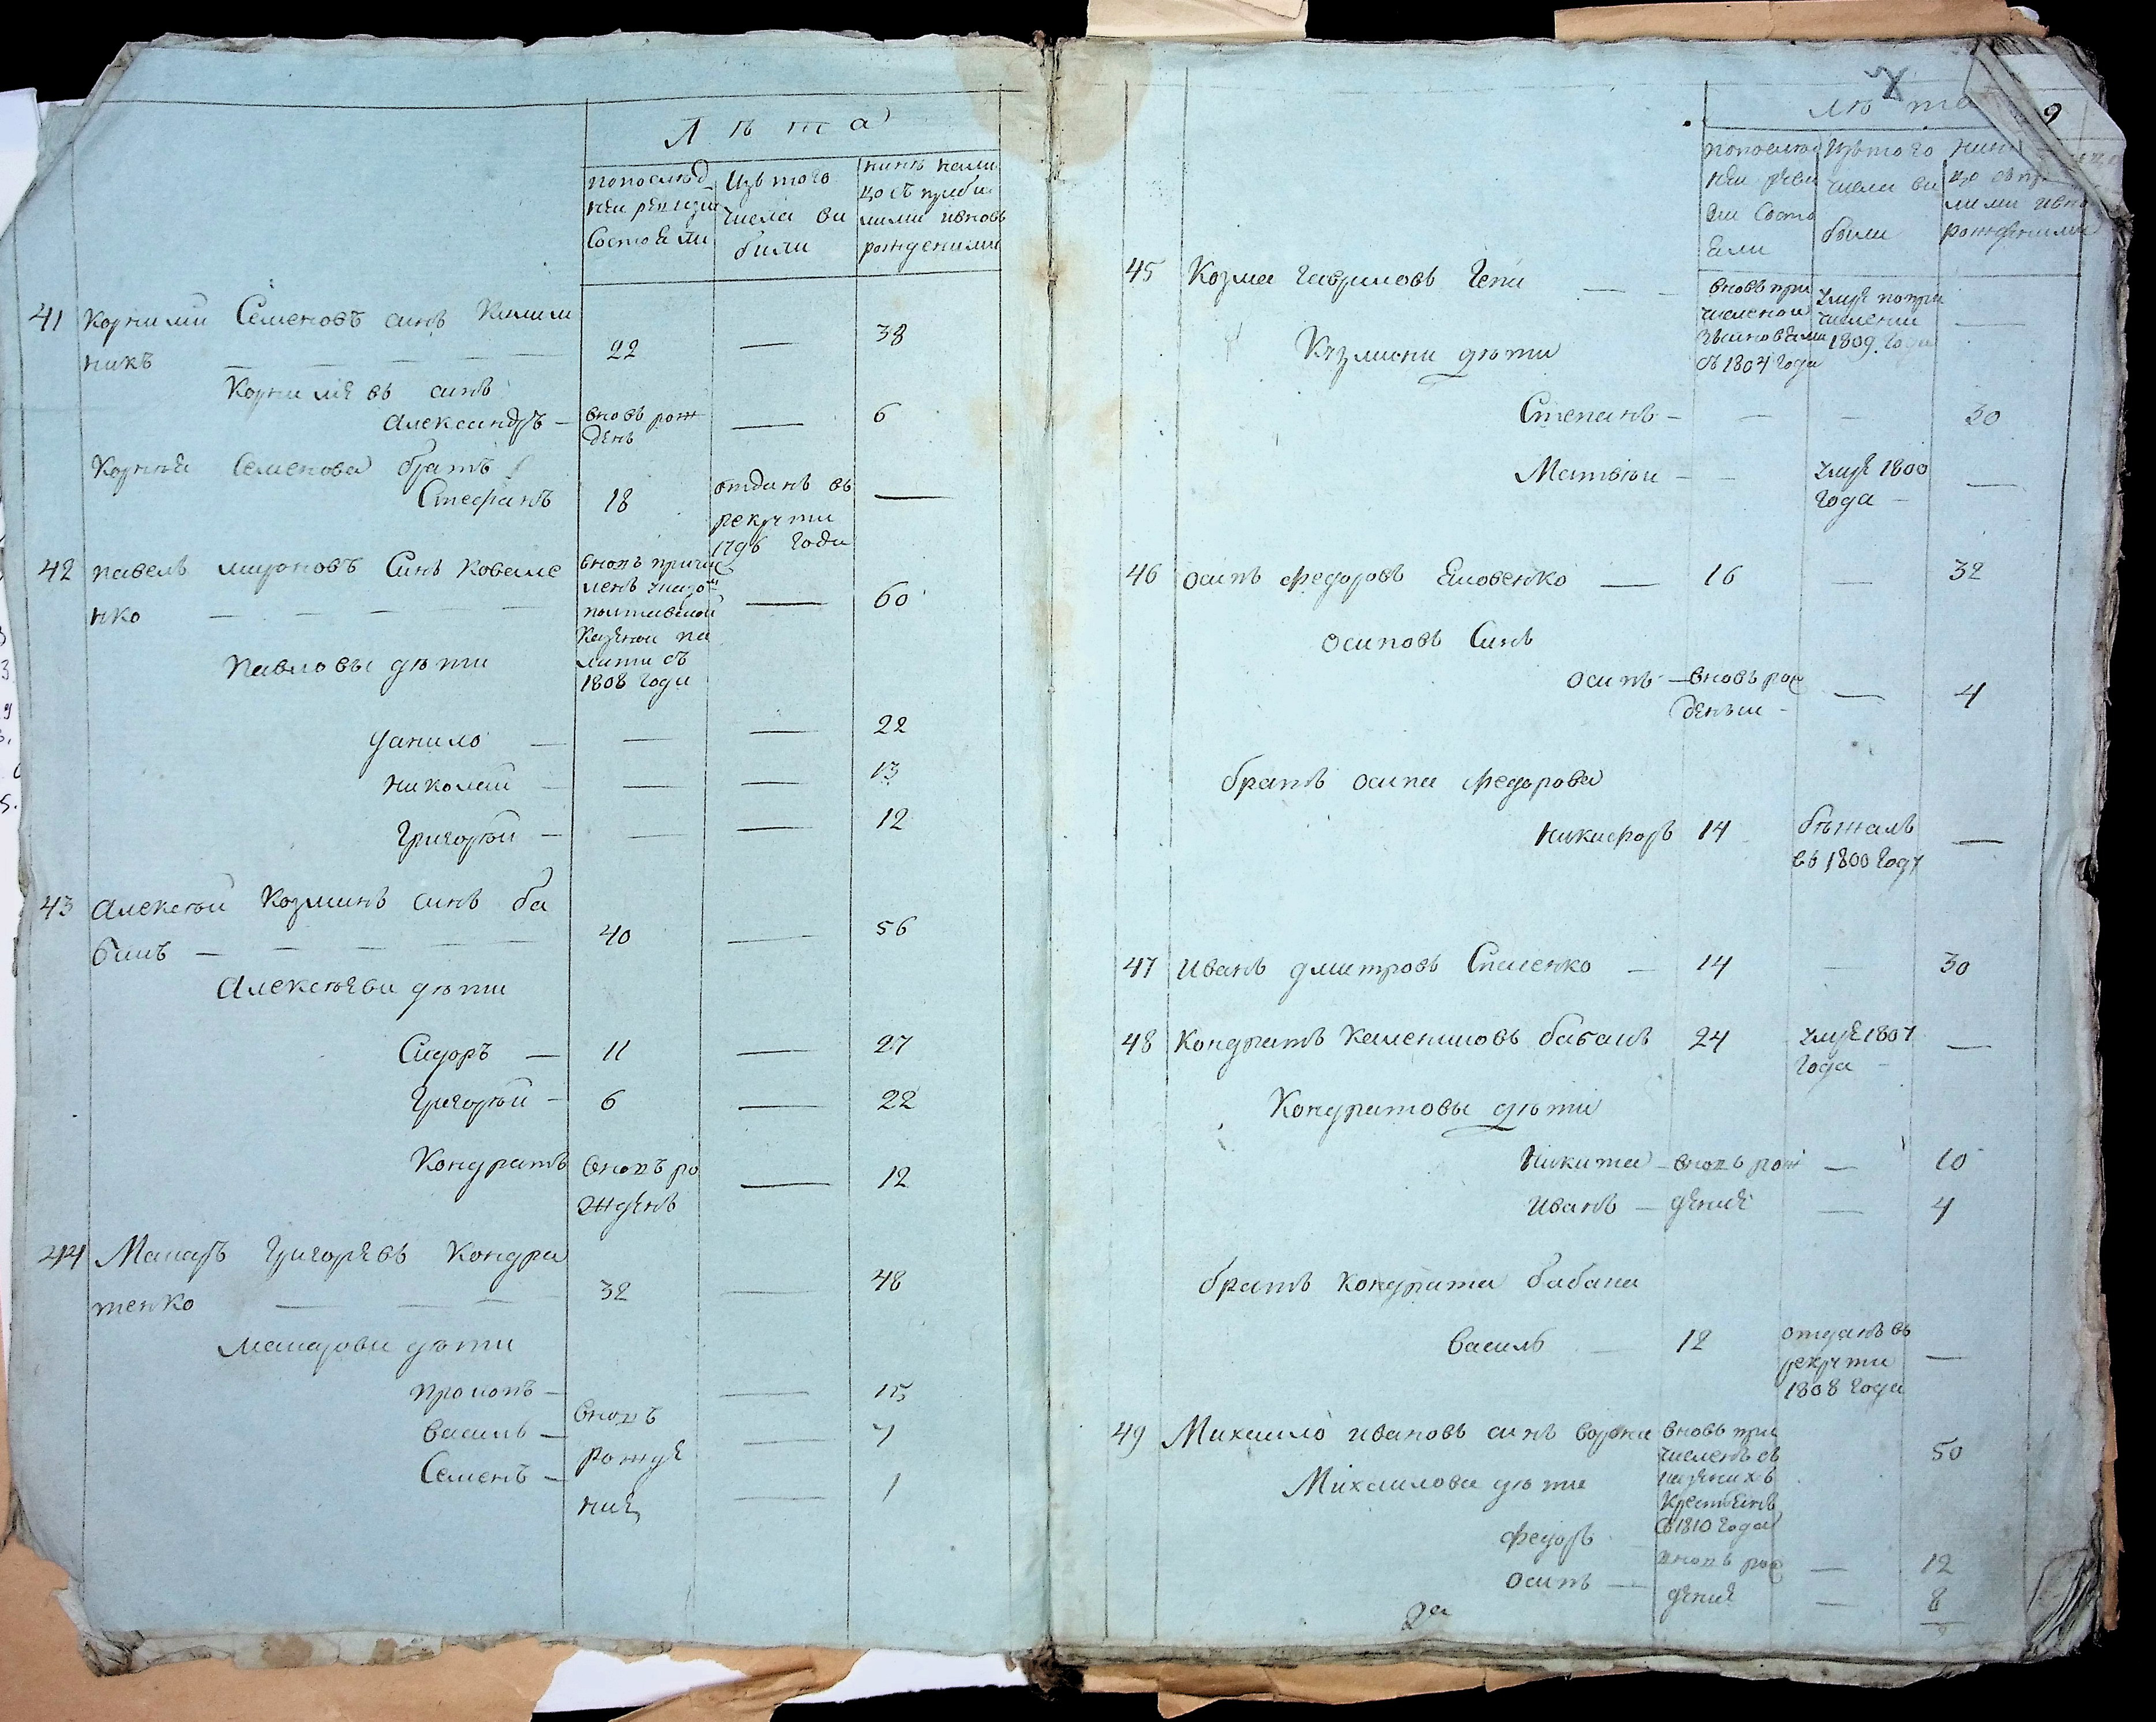 Л ѣ т а
попослѣд
ней ревизіи
состоели
Изъ того
числа ви
били
нинѣ нали
цо съ приби
лими ивновь
рожденими
41 Корнилий Семеновъ синъ Калини
никъ — 22 — 38
Корнилѣвъ синъ
Александръ — вновь рож
денъ — 6
Корнѣя Семенова братъ
Стефанъ 18 отданъ въ
рекрути
1796 года —
42 павелъ мироновъ Синъ Ковале
нко — вновъ причис
ленъ указо
полтавской
Казеной па
лати съ
1808 года — 60
Павловы дѣти
Данило — — — 22
Николай — — — 13
Григорѣй — — — 12
43 Алексѣй Козминъ синъ ба
банъ — 40 — 56
Алексѣеви дѣти
Сидоръ — 11 — 27
Григорѣй — 6 — 22
Кондратъ вновъ ро
жденъ — 12
44 Макаръ Григорѣвъ Кондра
тенко — 32 — 48
макарови дѣти
прокопъ — — 15
василь — вновъ — 7
Семенъ — рожде
ния — 1
9
Лѣта
попослѣд
ней реви
зіи состо
ели
Изътого
числа ви
били
нинѣ
цо съпр
лими ивно
рожденими
45 Козма Гавриловъ Чепи — вновь при
численой
съ 1804 года
умре попри
числении
1809 года —
Кузмини дѣти
Степанъ — — — 30
Матвѣи — — умре 1800
года — —
46 осипъ федоровъ Еловенко — 16 — 32
осиповъ Синъ
осипъ — вновь рож
деныи — — 4
братъ осипа федорова
никифоръ 14 бѣжалъ
въ 1800 году —
47 иванъ дмитровъ Спаленко — 14 — 30
48 Кондратъ Калениковъ бабанъ 24 умре 1807
года — —
Кондратовы дѣти
Никита — вновъ рож — 10
иванъ — дение — 4
братъ кондрата бабана
василь 12 отданъ въ
рекрути
1808 года —
49 Михаило ивановъ синъ ворона вновь при
численъ съ
казених
крестьянъ
съ 1810 года 50
Михаилови дѣти
федоръ вновъ рож — 12
осипъ — дение — 8
2а